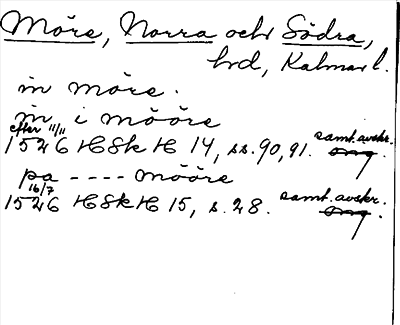 Möre, Norra och Södra,
hd, Kalmar l.
in möre.
in i mööre
efter 11/11
1526 HSkH 14, ss. 90, 91. samt. avskr.
pa ---- mööre
16/7
1526 HSkH 15, s. 28. samt. avskr.